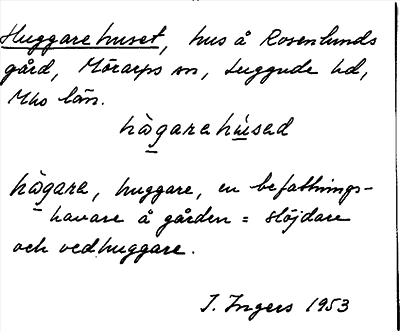 Huggarehuset, hus å Rosenlunds
gård, Mörarps sn, Luggude hd,
Mhs län.
hàgarahúsad
hàgara, huggare, en befattnings-
havare å gården = slöjdare
och vedhuggare.
I. Ingers 1953